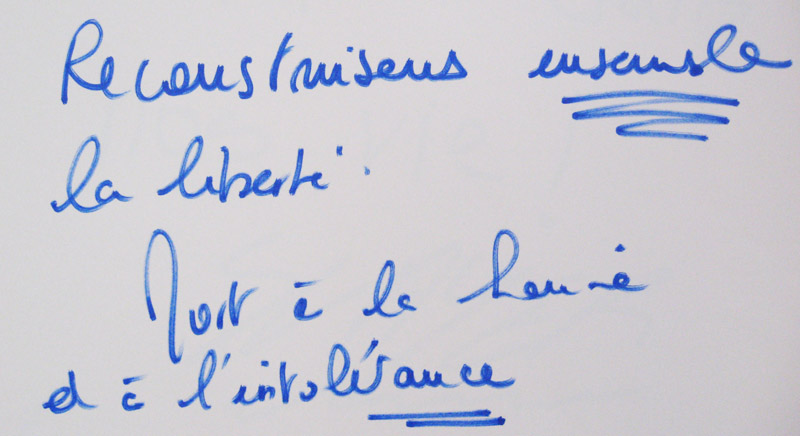 Reconstruisons ensemble
la liberté.
Mort à la haine
et à l'intolérance